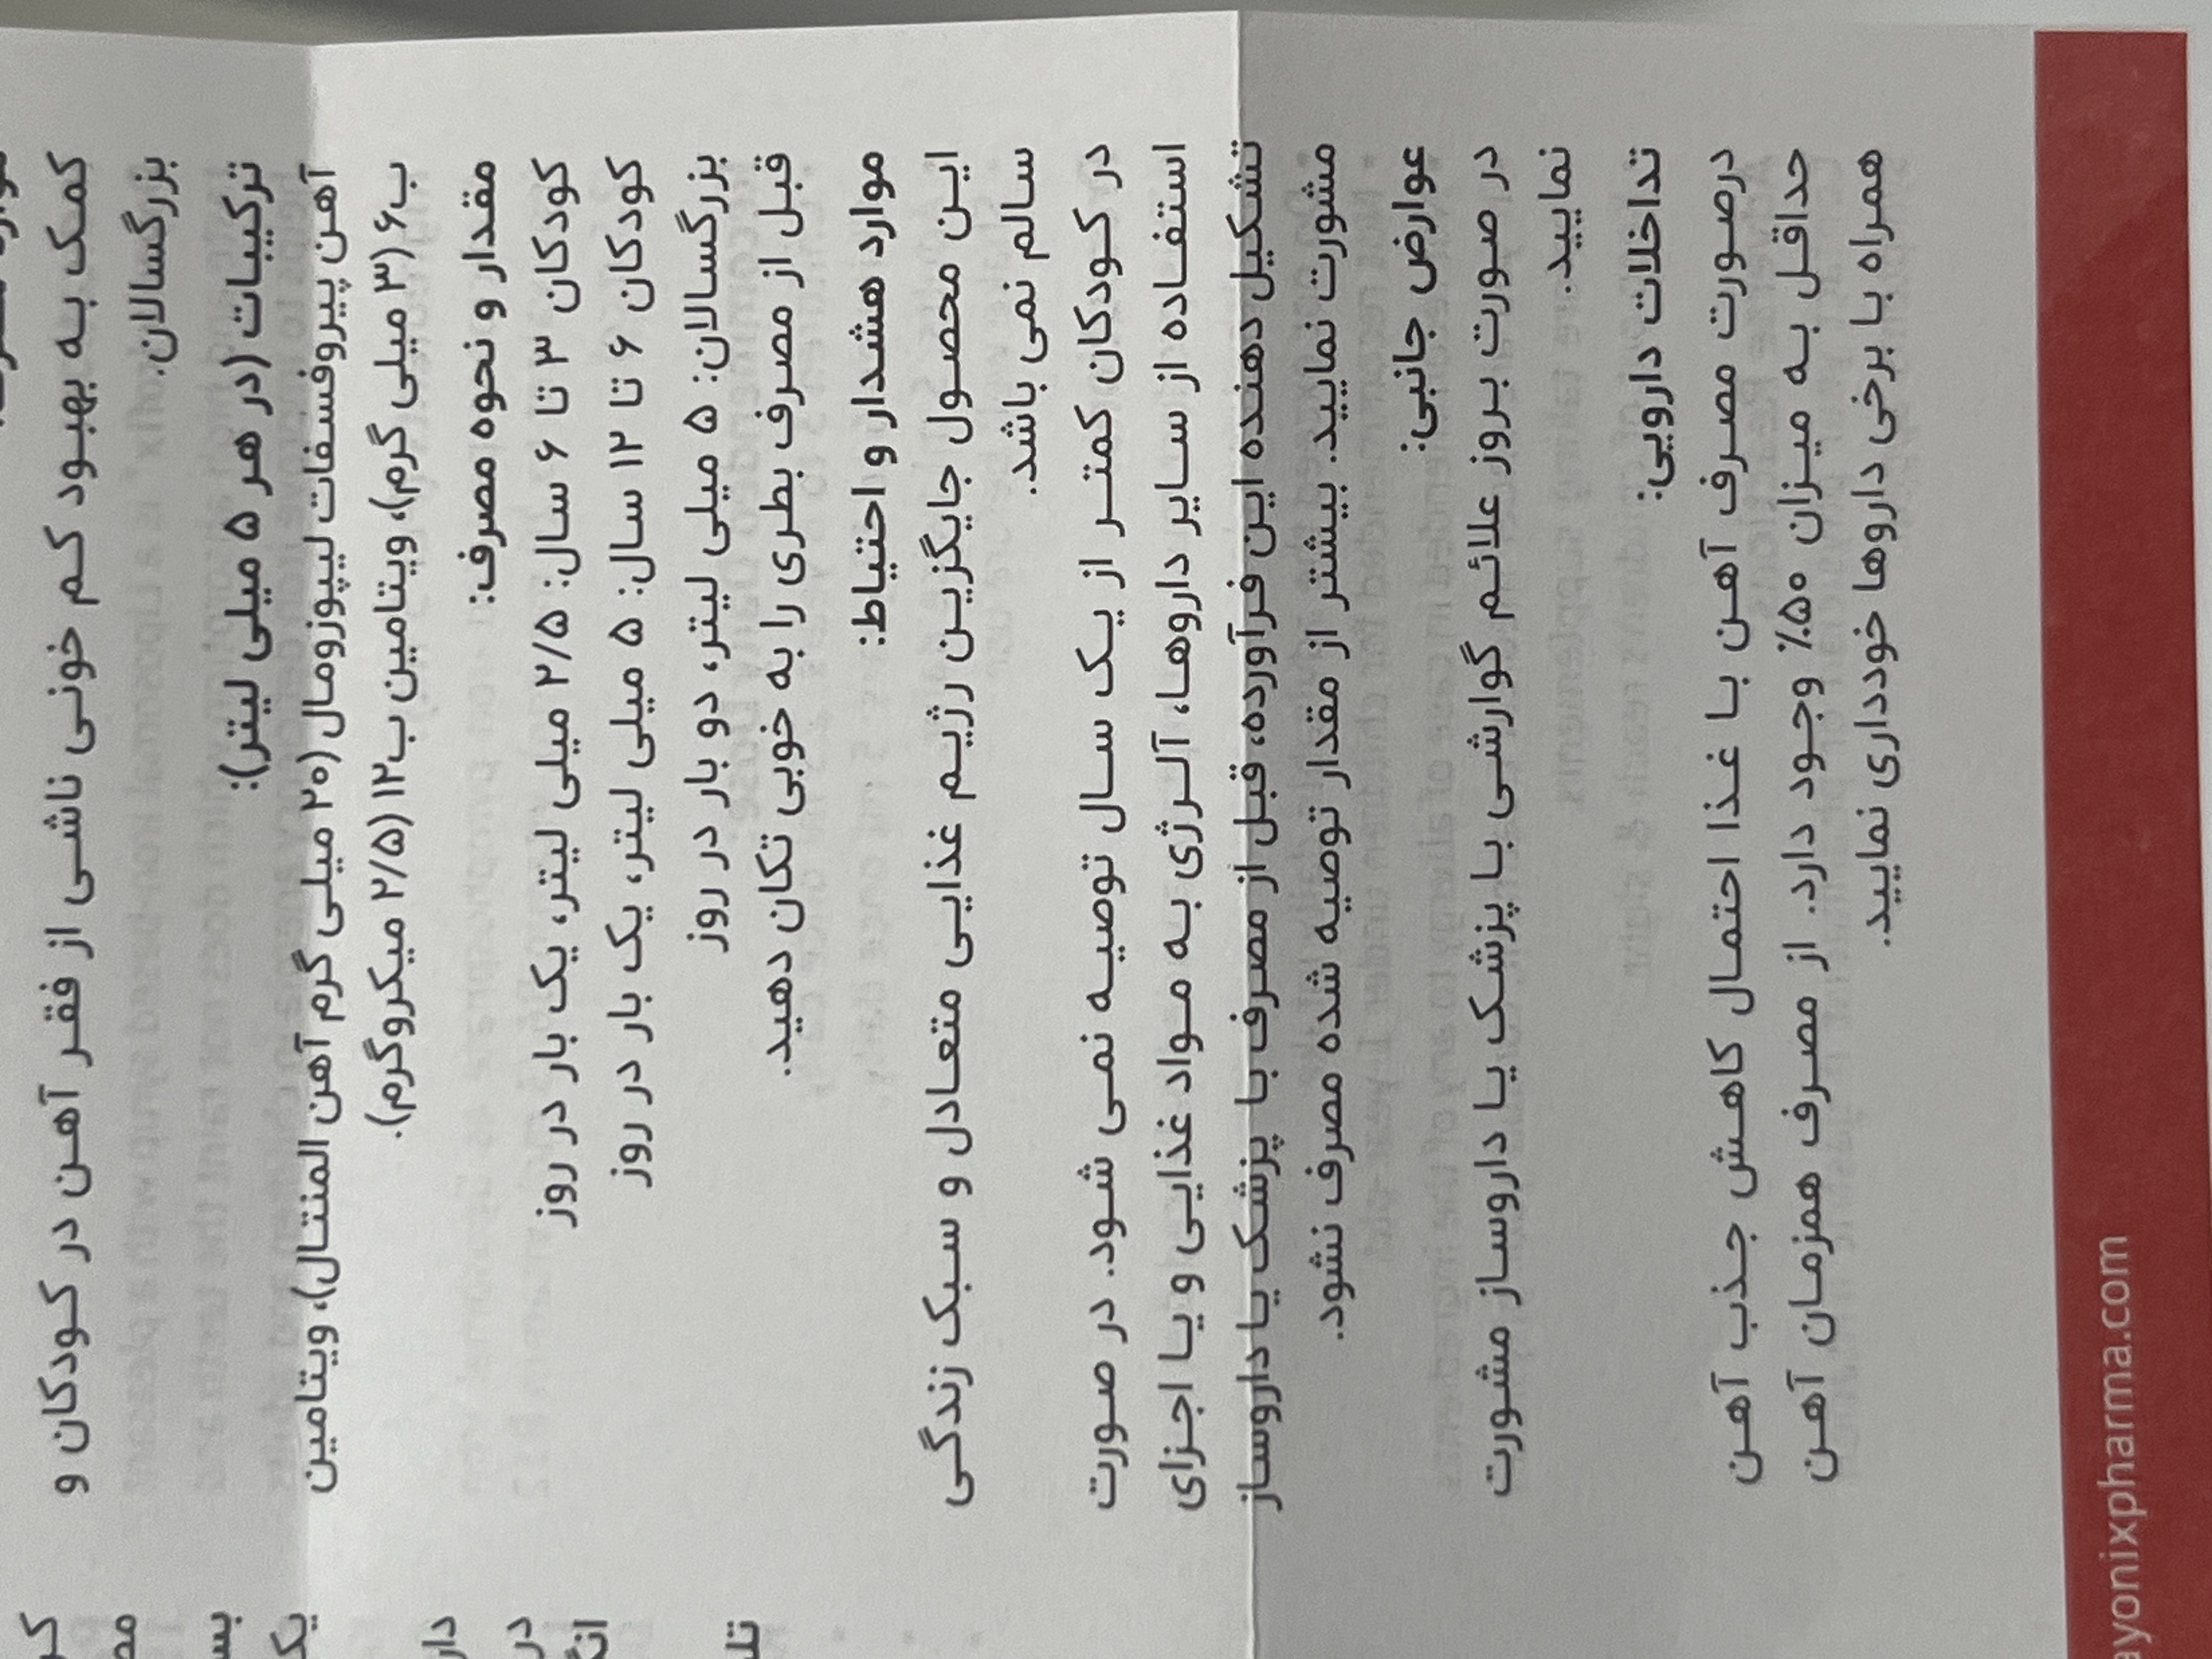 کمک به بهبود کم خونی ناشی از فقر آهن در کودکان و
بزرگسالان.
ترکیبات (در هر ۵ میلی لیتر):
آهن پیروفسفات لیپوزومال (۲۰ میلی گرم آهن المنتال)، ویتامین
ب۶ (۳ میلی گرم)، ویتامین ب۱۲ (۲/۵ میکروگرم).
مقدار و نحوه مصرف:
کودکان ۳ تا ۶ سال: ۲/۵ میلی لیتر، یک بار در روز
کودکان ۶ تا ۱۲ سال: ۵ میلی لیتر، یک بار در روز
بزرگسالان: ۵ میلی لیتر، دو بار در روز
قبل از مصرف بطری را به خوبی تکان دهید.
موارد هشدار و احتیاط:
این محصول جایگزین رژیم غذایی متعادل و سبک زندگی
سالم نمی باشد.
در کودکان کمتر از یک سال توصیه نمی شود. در صورت
استفاده از سایر داروها، آلرژی به مواد غذایی و یا اجزای
تشکیل دهنده این فرآورده، قبل از مصرف با پزشک یا داروساز
مشورت نمایید. بیشتر از مقدار توصیه شده مصرف نشود.
عوارض جانبی:
در صورت بروز علائم گوارشی با پزشک یا داروساز مشورت
نمایید.
تداخلات دارویی:
درصورت مصرف آهن با غذا احتمال کاهش جذب آهن
حداقل به میزان ۵۰٪ وجود دارد. از مصرف همزمان آهن
همراه با برخی داروها خودداری نمایید.
ayonixpharma.com